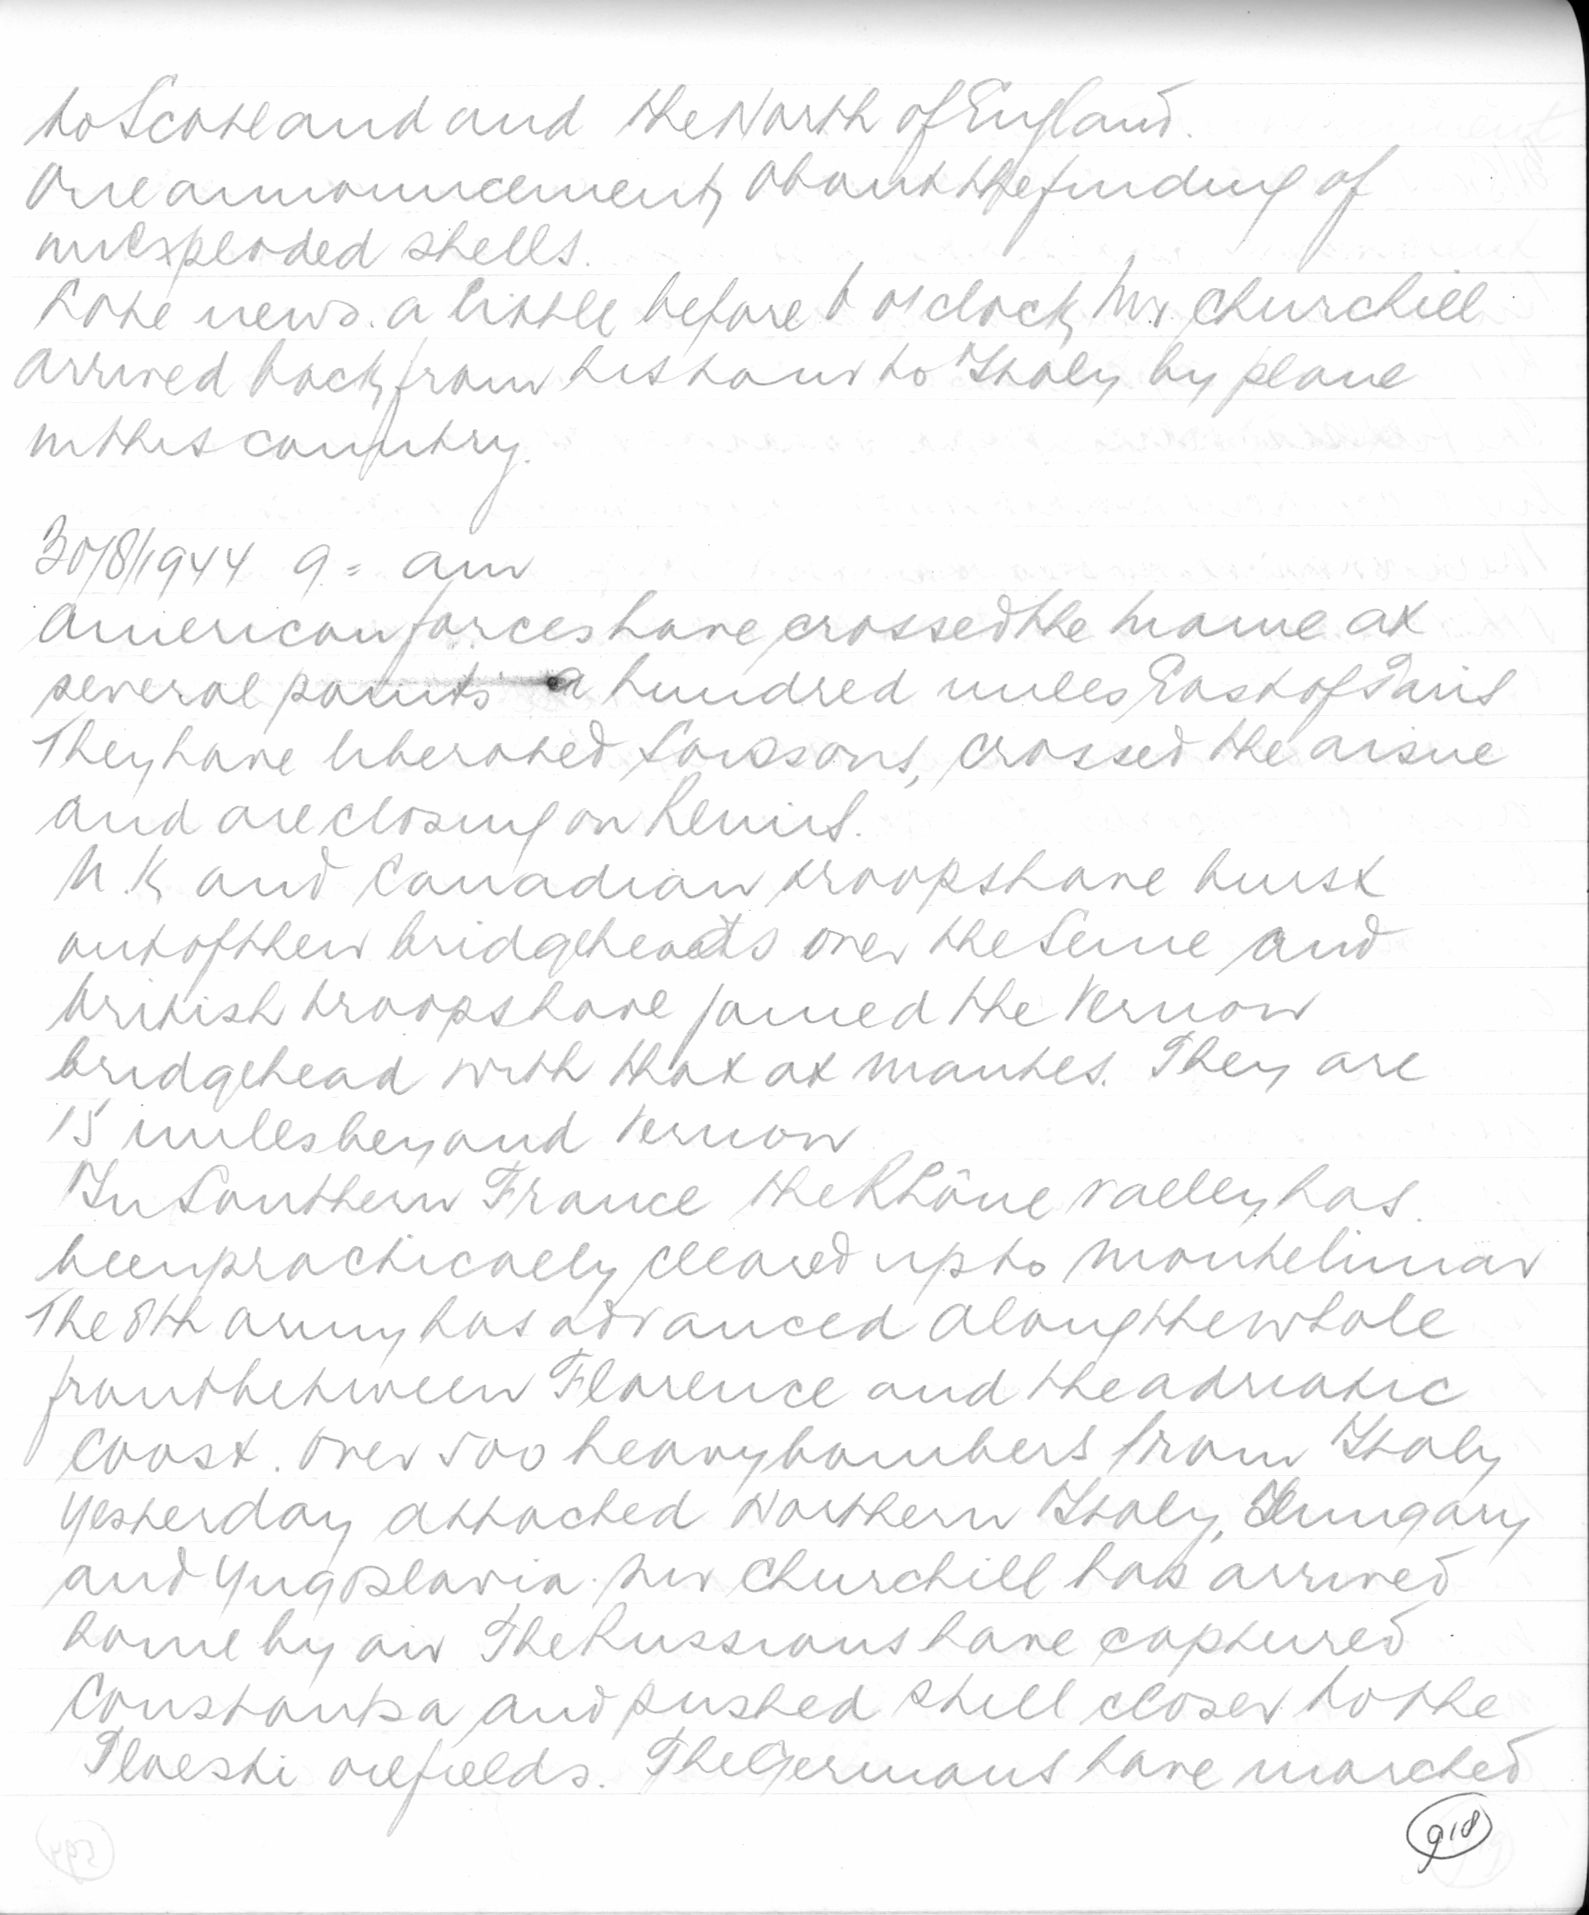 to Scotland and the North of England.
One announcement, about the finding of
unexploded shells.
Late news. a little before 6 o'clock, Mr. Churchill
arrived back from his tour to Italy by plane
in this country.
30/8/1944 9 = am
American forces have crossed the Marne at
several points a hundred miles East of Paris
They have liberated Soissons, crossed the aisne
and are closing on Reims.
U.K. and Canadian troops have burst
out of their bridgeheads over the Seine and
British troops have joined the Vernon
bridgehead with that at Mantes. They are
15 miles beyond Vernon
In Southern France the Rhône valley has
been practically cleared up to Montelimar
The 8th army has advanced along the whole
front between Florence and the adriatic
Coast. Over 500 heavy bombers from Italy
yesterday attacked Northern Italy, Hungary
and Yugoslavia. Mr Churchill has arrived
home by air The Russians have captured
Constantsa and pushed still closer to the
Ploesti oilfields. The Germans have marched
918